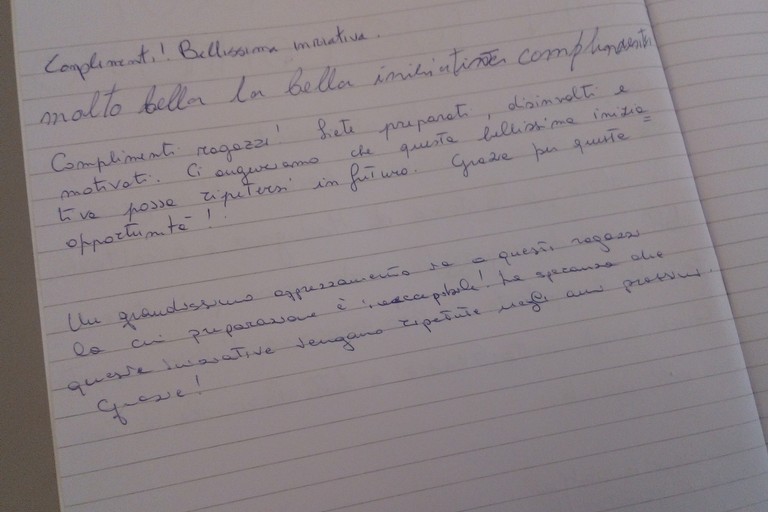 Complimenti! Bellissima iniziativa.
molto bella la bella iniziativa complimenti
Complimenti ragazzi! Siete preparati, disinvolti e
motivati. Ci auguriamo che questa bellissima inizia
tiva possa ripetersi in futuro. Grazie per questa =
opportunità!
Un grandissimo apprezzamento va a questi ragazzi
la cui preparazione è ineccepibile! La speranza che
queste iniziative vengano ripetute negli anni prossimi.
Grazie!